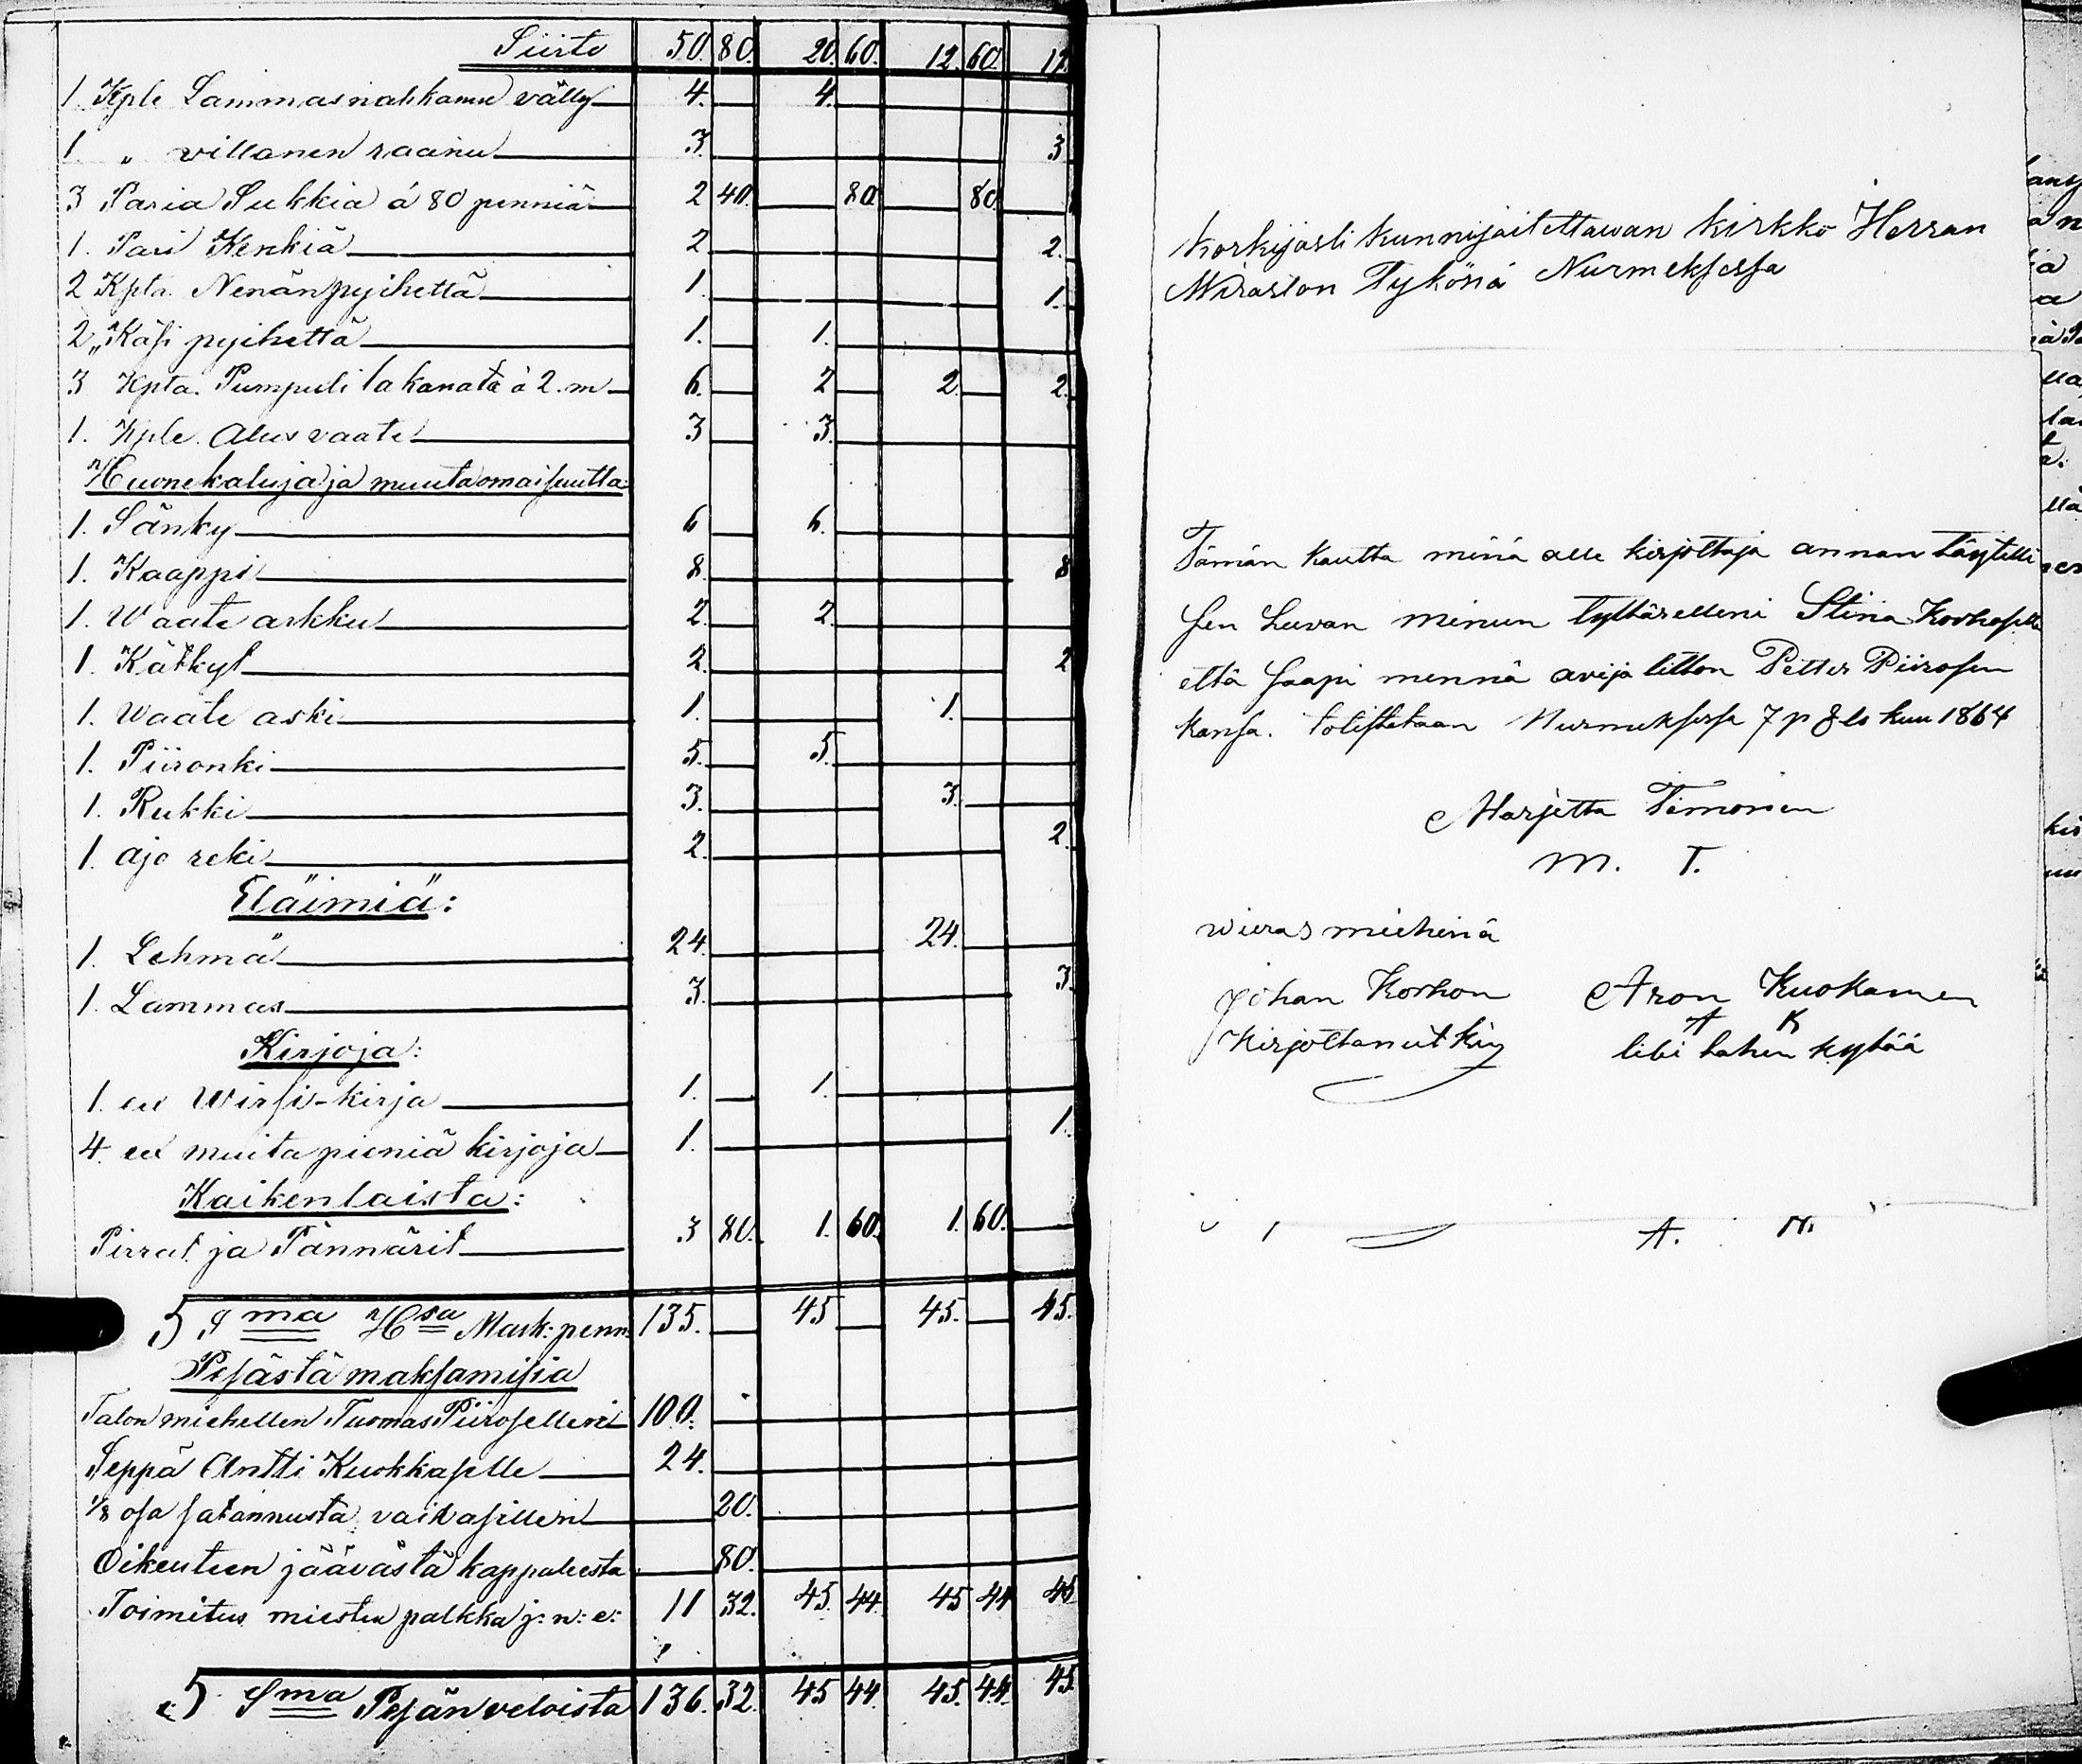 Siirto 50. 80. 20. 60. 12. 60. 17.
1 Kple Lammasnahkanen välly 4. 4.
1 „ villanen raanu 3. 3
3 Paria Sukkia á 80 penniä 2 40. 80. 80.
1. Pari Kenkiä 2 2.
2 Kpta. Nenänpyihettä 1. 1.
2 „ Käsi pyihettä 1. 1.
3 Kpta. Pumpuli lakanata á 2. m 6. 2 2. 2.
1. Kple. Alusvaate 3 3.
Huonekaluja ja muuta omaisuutta
1. Sänky 6 6.
1. Kaappi 8. 8
1. Waate arkku 2. 2.
1. Kätkyt 2. 2
1. Waate aski 1. 1.
1. Piironki 5. 5.
1. Rukki 3. 3.
1. ajo reki 2. 2.
Eläimiä:
1. Lehmä 24. 24.
1. Lammas 3. 3.
Kirjoja:
1. Wirsi-kirja 1. 1.
4. muita pieniä kirjoja 1. 1.
Kaikenlaista:
Pirrat ja Tännärit 3 80. 1. 60. 1. 60.
Sma Mark: penn. 135. 45 45. 45.
Pesästä maksamisia
Talon miehellen Tuomas Piirosellen 100.
Seppä Antti Kuokkaselle 24.
1/8 osa satannusta vaivasillen 20.
Oikeuteen jäävästä kappaleesta 80.
Toimitus miesten palkka j: n: e: 11 32. 45. 44. 45 44 45
Sma Pesän veloista 136. 32. 45 44. 45. 44. 45.
Korkijasti kunnijoitettawan kirkko Herran
Wiraston Tykönä Nurmeksessa
Tämän kautta minä alle kirjoltaja annan täytelli
sen Luvan minun tyttärelleni Stina Korhoselle
että saapi mennä avija litton Petter Piirosen
kansa. totistetaan Nurmeksessa 7 p lo kuu 1864
Marjetta Timonen
M. T.
wieras miehenä
Johan Korhon Aron Kuokanen
A K
Kirjoltanut libi lahen kylää
A.